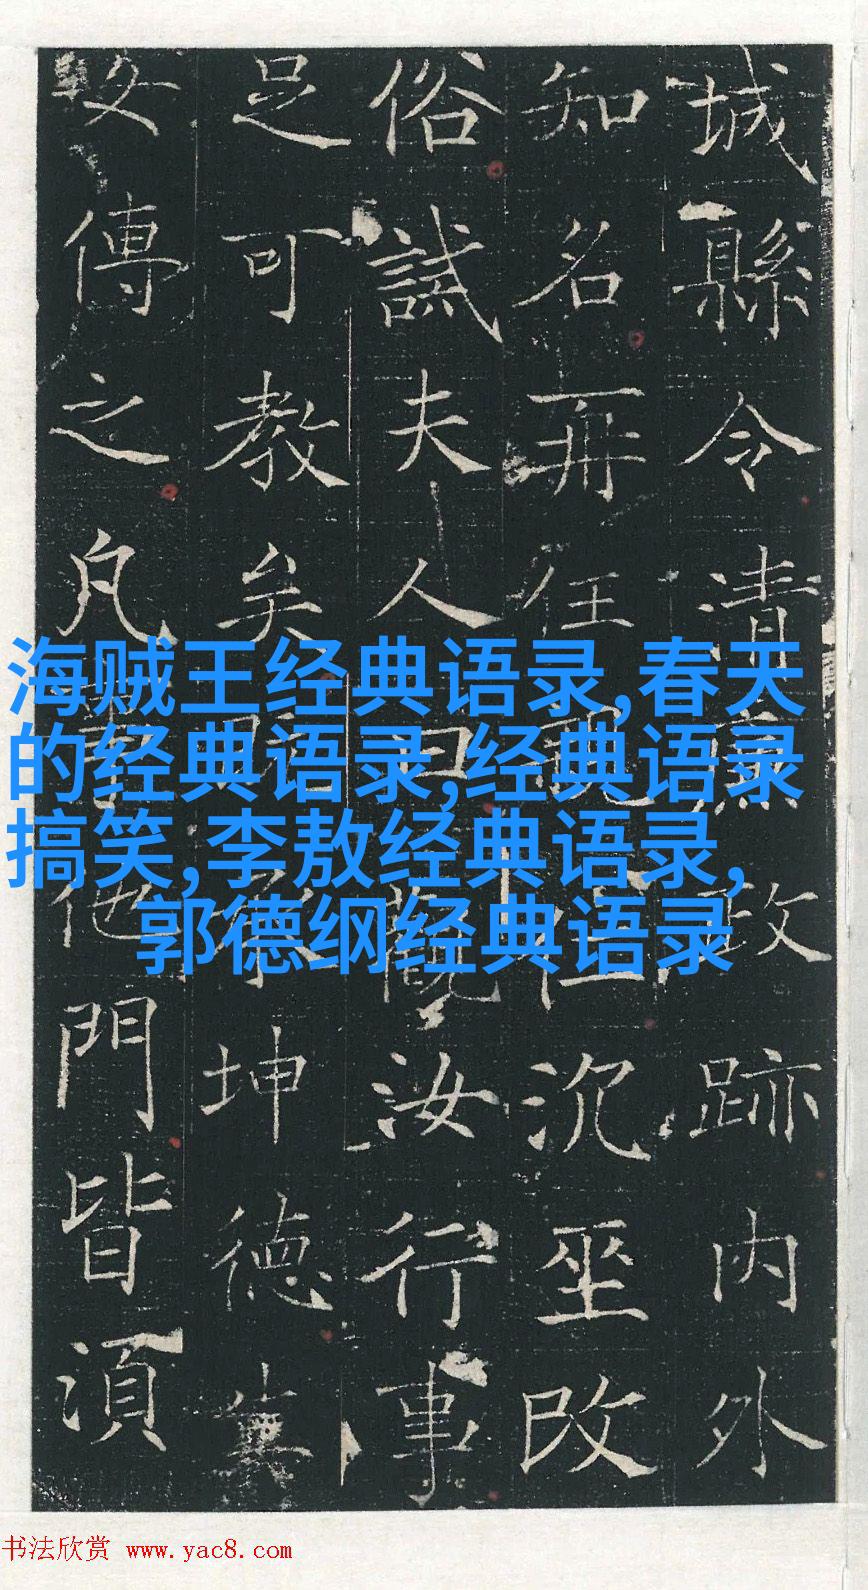 城縣令清政跡內外
知名再任沉坐改
俗誡夫人曰觀汝行事
足可教矣坤德
傳之凡他門皆須
海贼王经典语录,春天
的经典语录,经典语录
搞笑,李敖经典语录,
郭德纲经典语录
书法欣赏 www.yac8.com